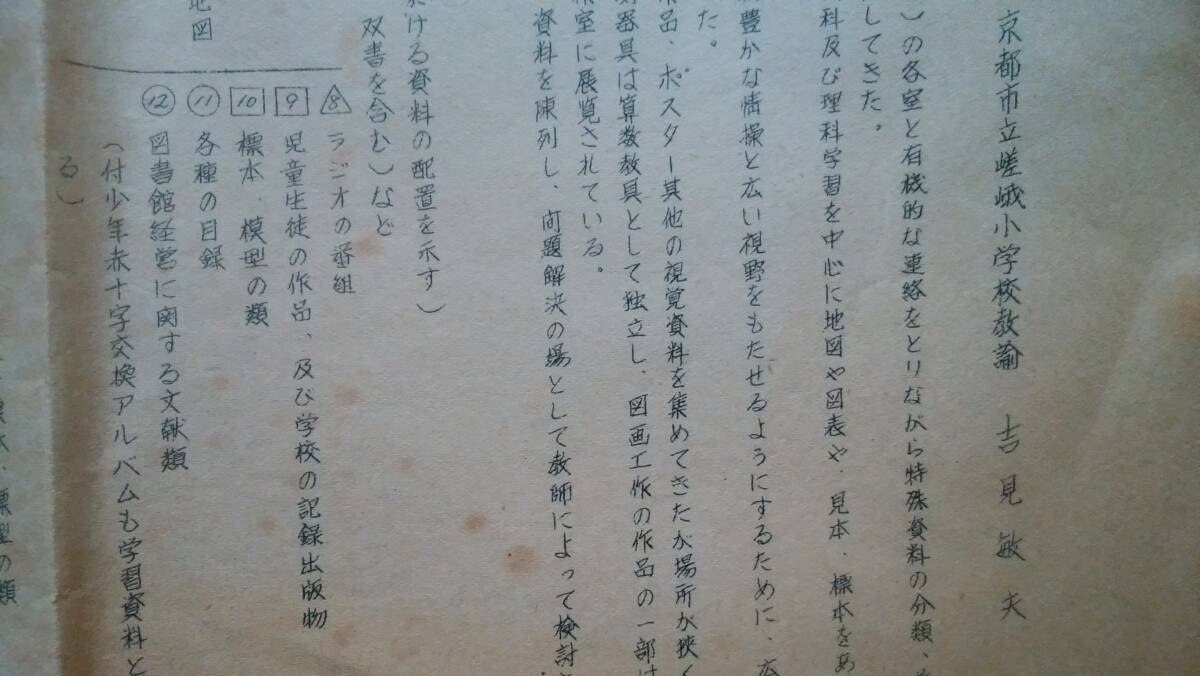 京都市立嵯峨小学校教諭　吉見敏夫
）の各室と有機的な連絡をとりながら特殊資料の分類、
してきた。
科及び理科学習を中心に地図や図表や、見本、標本をあ
豊かな情操と広い視野をもたせるようにするために、広
た。
品、ポスター其他の視覚資料を集めてきたが場所が狭く
器具は算数教具として独立し、図画工作の作品の一部は
室に展覧されている。
資料を陳列し、問題解決の場として教師によって検討
ける資料の配置を示す）
双書を含む）など
⑧ ラジオの番組
9 児童生徒の作品、及び学校の記録出版物
10 標本、模型の類
⑪ 各種の目録
⑫ 図書館経営に関する文献類
（付少年赤十字交換アルバムも学習資料と
る）
地図
型の類